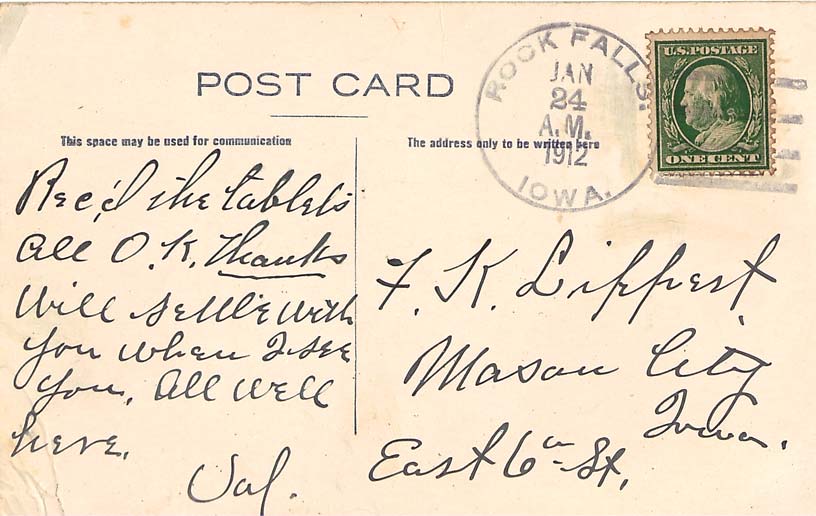 POST CARD
ROCK FALLS.
JAN
24
A.M.
1912
IOWA.
U.S. POSTAGE
ONE CENT
This space may be used for communication
The address only to be written here
Rec'd the tablets
all O.K. Thanks
Will settle with
you when I see
you. All well
here.
Val.
F. K. Lippert
Mason City
Iowa.
East 6th St.